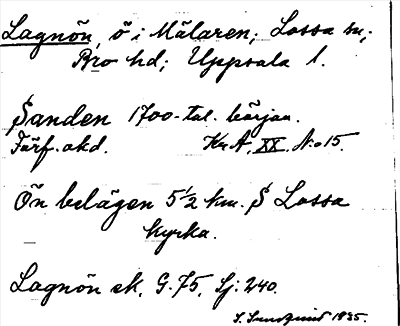 Lagnön, ö i Mälaren; Lossa sn;
Bro hd; Uppsala l.
Sanden 1700-tal. början.
Förf. okd. KrA, XX. No 15.
Ön belägen 5½ km. S Lossa
kyrka.
Lagnön ek. G. 75, Sj: 240.
1935.